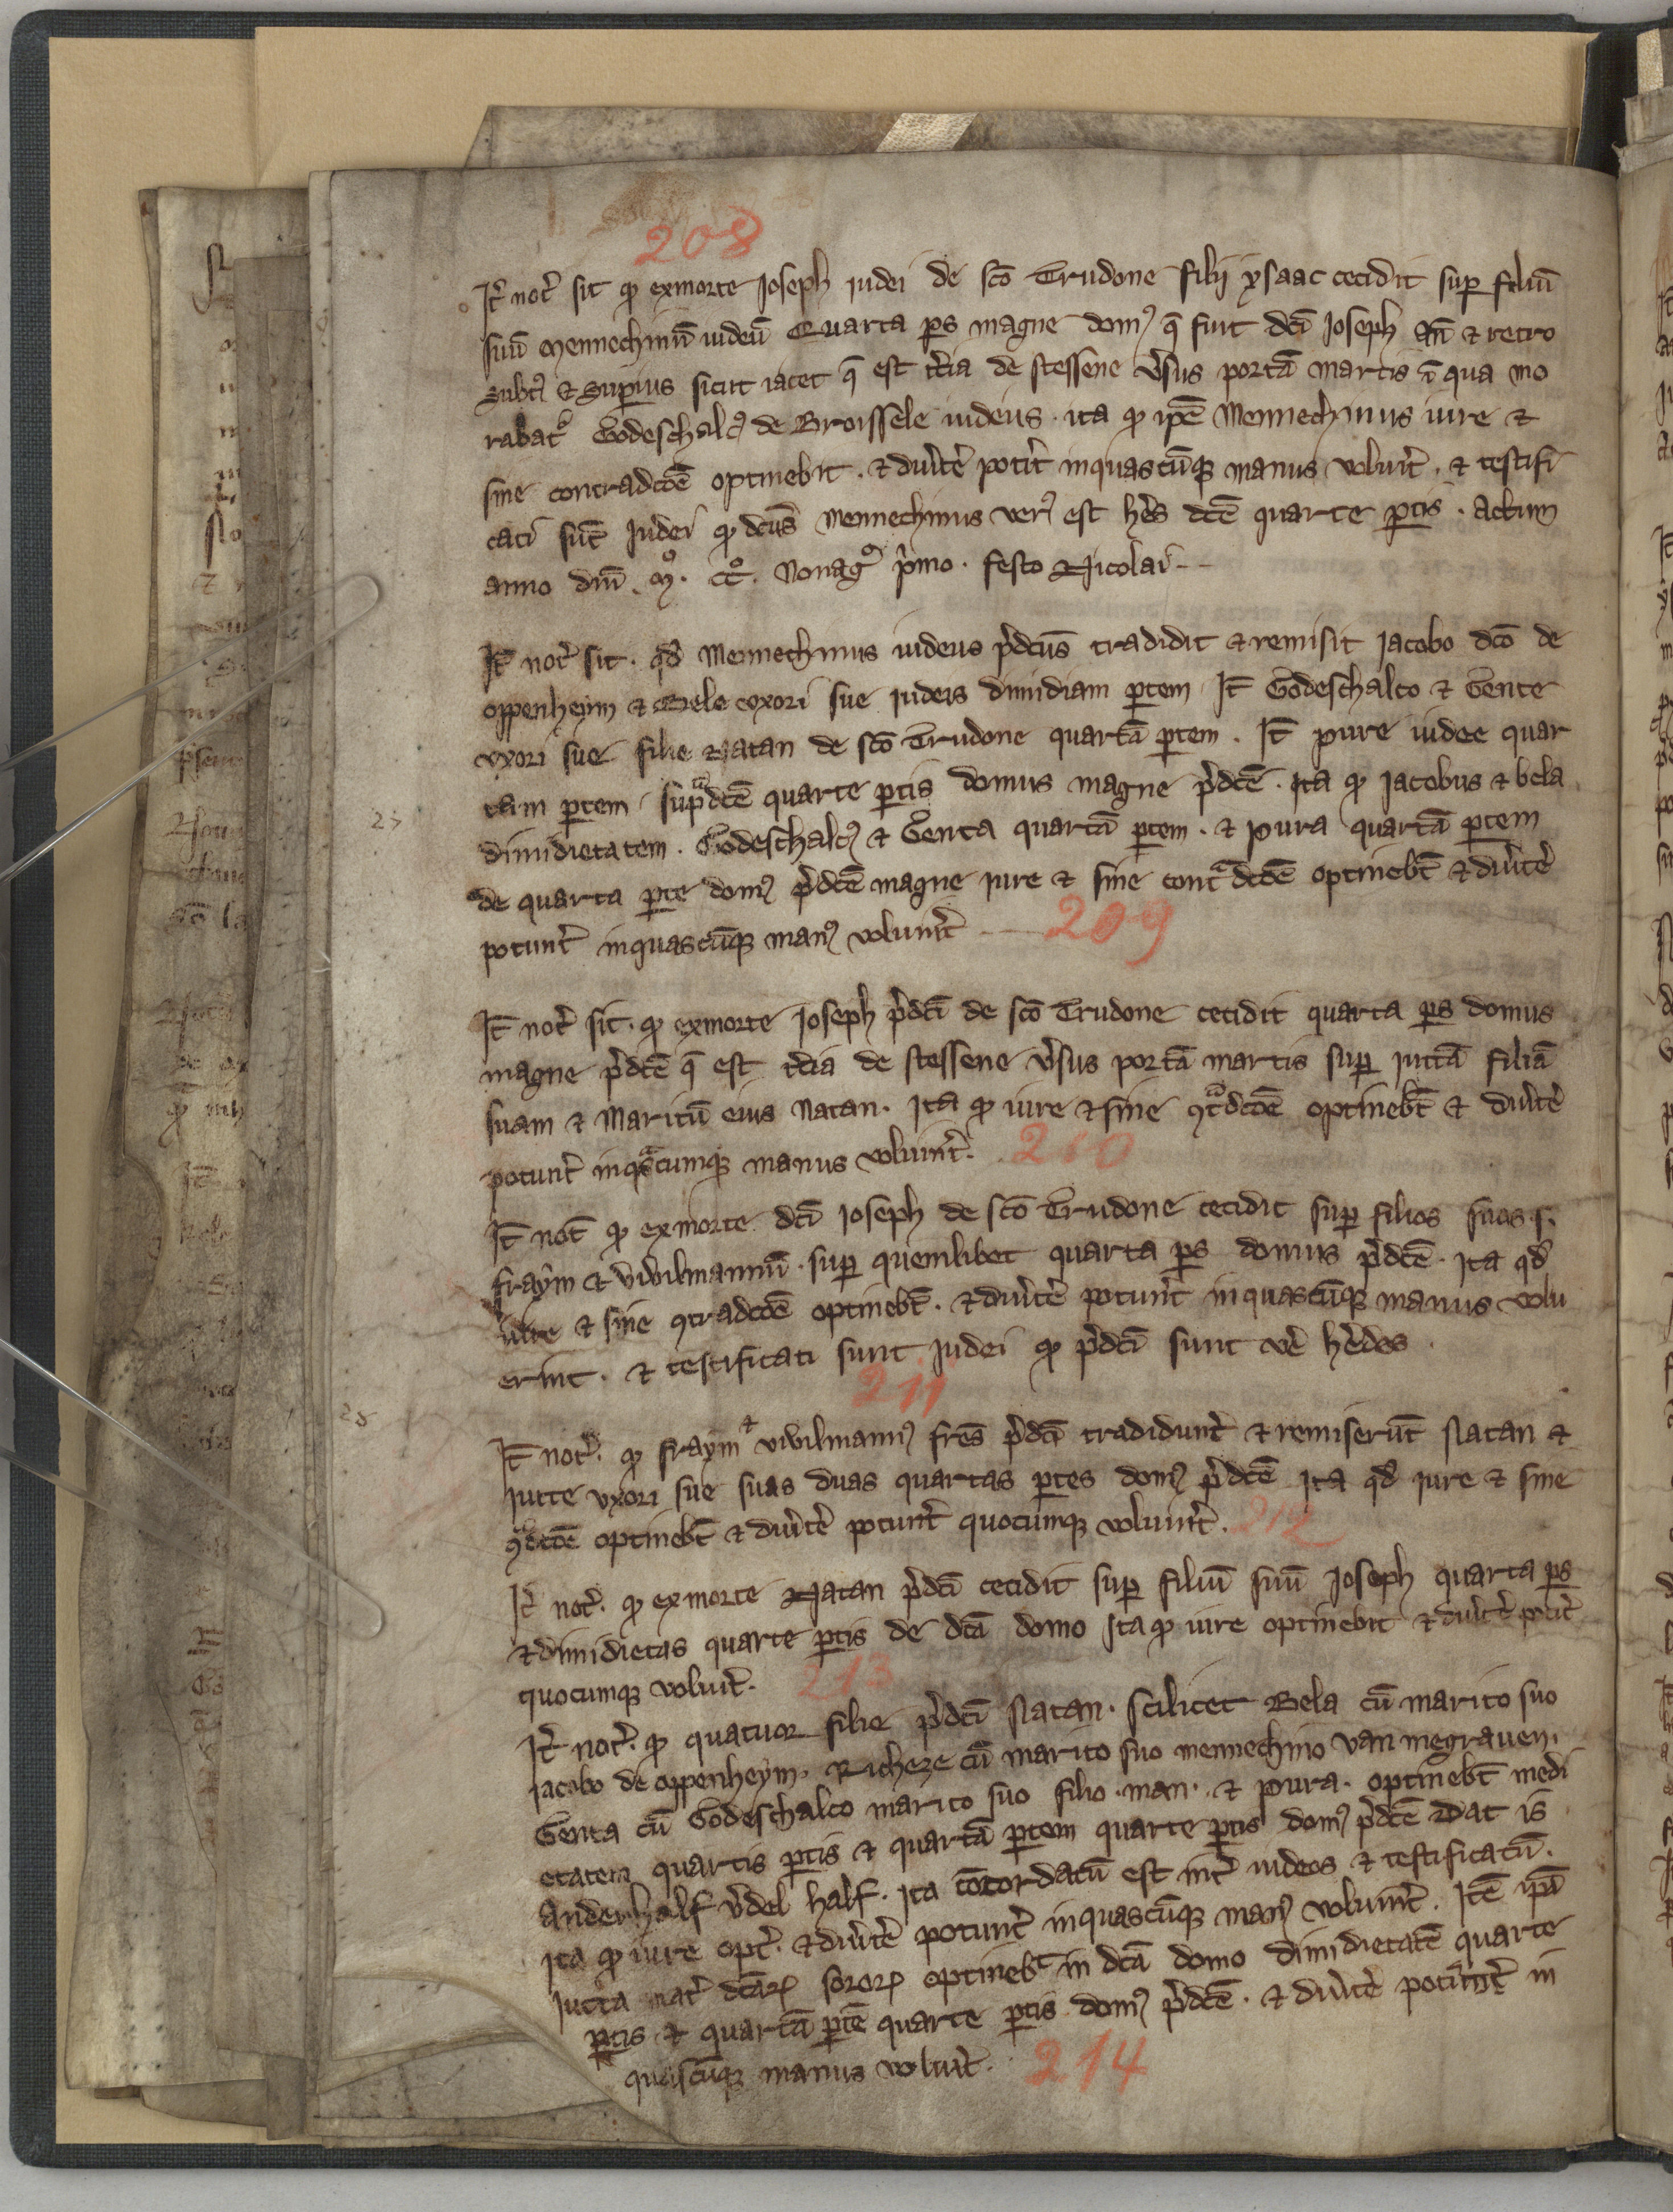 208
It̄ not̄ sit qͥ exmorte Joseph iudei de sco̅ Trudone filij ysaac cecidit sup filiu̅
suu̅ Mennechinu̅ iudeu̅ Quarta ps magne domꝰ q̅ fuit dc̅i Joseph an̅ & retro
subtꝰ & Superius sicut iacet q̅ est tc̅ia de stessene v̅sus porta̅ martis i̅ qua mo
rabat Godeschalcꝰ de Broissele iudeus . ita qͥ ipe̅ Mennechinus iure &
sine contradcōe̅ optinebit . & diu̅te̅ potit̅ inquascu̅qꝫ manus voluit̅ . & testifi
cati su̅t Judei qͥ dcu̅s Mennechinus verꝰ est he̅s dce̅ quarte ptis . Actum
anno dni̅ . Mͦ . CCͦ . Nonagͦ p̅mo . festo Nicolai --
It̅ not̅ sit . qd̅ Mennechinus iudeus p̅dcu̅s tradidit & remisit Jacobo dco̅ de
oppenheym & Bele vxori sue iudeis dimidiam ptem It̅ Godeschalco & Gente
vxori sue filie Natan de sco̅ Trudone quarta̅ ptem . It̅ pure iudee quar
tam ptem supᵃdce̅ quarte ptis domus magne p̅dce̅ . Ita qͥ Jacobus & bela
27
dimidietatem . Godeschalcꝰ & Genta quarta̅ ptem . & pura quarta̅ ptem
de quarta pte domꝰ p̅dce̅ magne iure & sine contᵃdcōe̅ optinebt̅ & diu̅te̅
potunt̅ inquascu̅qꝫ manꝰ volunt̅ -- 209
It̅ not̅ sit . qͥ exmorte Joseph p̅dci̅ de sco̅ Trudone cecidit quarta ps domus
magne p̅dce̅ q̅ est tc̅ia de stessene v̅sus porta̅ martis sup jutta̅ filia̅
suam & Maritu̅ eius Natan . Ita qͥ iure & sine ꝯtᵃdcōe̅ optinebt̅ & diu̅te̅
potunt̅ inqᵃscumqꝫ manus voluint̅ . 210
It̅ not̅ qͥ exmorte dci̅ Joseph de sco̅ Trudone cecidit sup filios suos . s .
fraym & vivilmannu̅ . sup quemlibet quarta ps domus p̅dce̅ . Ita qd̅
iure & sine ꝯtradcōe̅ optinebt̅ . & diu̅te̅ potunt̅ inquascu̅qꝫ manus volu
erint . & testificati sunt Judei qͥ p̅dci̅ sunt ve̅ he̅des .
211
28
It̅ not̅ . qͥ fraym & vivilmannꝰ fre̅s p̅dci̅ tradidunt̅ & remiseru̅t Natan &
Jutte vxori sue suas duas quartas ptes domꝰ p̅dce̅ Ita qd̅ iure & sine
ꝯᵃdcōe̅ optinebt̅ & diu̅te̅ potunt̅ quocumqꝫ voluint̅ . 212
It̅ not̅ . qͥ exmorte Natan p̅dci̅ cecidit sup filiu̅ suu̅ Joseph quarta ps
& dimidietas quarte ptis de dca̅ domo Ita qͥ iure optinebit & diu̅te̅ potit̅
quocumqꝫ voluit̅ . 213
It̅ not̅ . qͥ quatuor filie p̅dci̅ Natan . scilicet Bela cu̅ marito suo
Jacobo de oppenheym . Richeze cu̅ marito suo mennechino van megraven .
Genta cu̅ Godeschalco marito suo filio . man . & pura . optinebt̅ medi
etatem quartis ptis & quarta̅ ptem quarte ptis domꝰ p̅dce̅ Dat is
Anderhalf v̅del half . Ita co̅cordatu̅ est int̅ iudeos & testificatu̅ .
Ita qͥ iure opt̅ . & diu̅te̅ potunt̅ inquascu̅qꝫ manꝰ voluint̅ . Ite̅ ipa̅
Jutta mat̅ dca̅ꝝ soroꝝ optinebt̅ in dca̅ domo dimidietate̅ quarte
ptis & quarta̅ pte̅ quarte ptis domꝰ p̅dce̅ . & diu̅te̅ potint̅ in
quascu̅qꝫ manus voluit̅ . 214